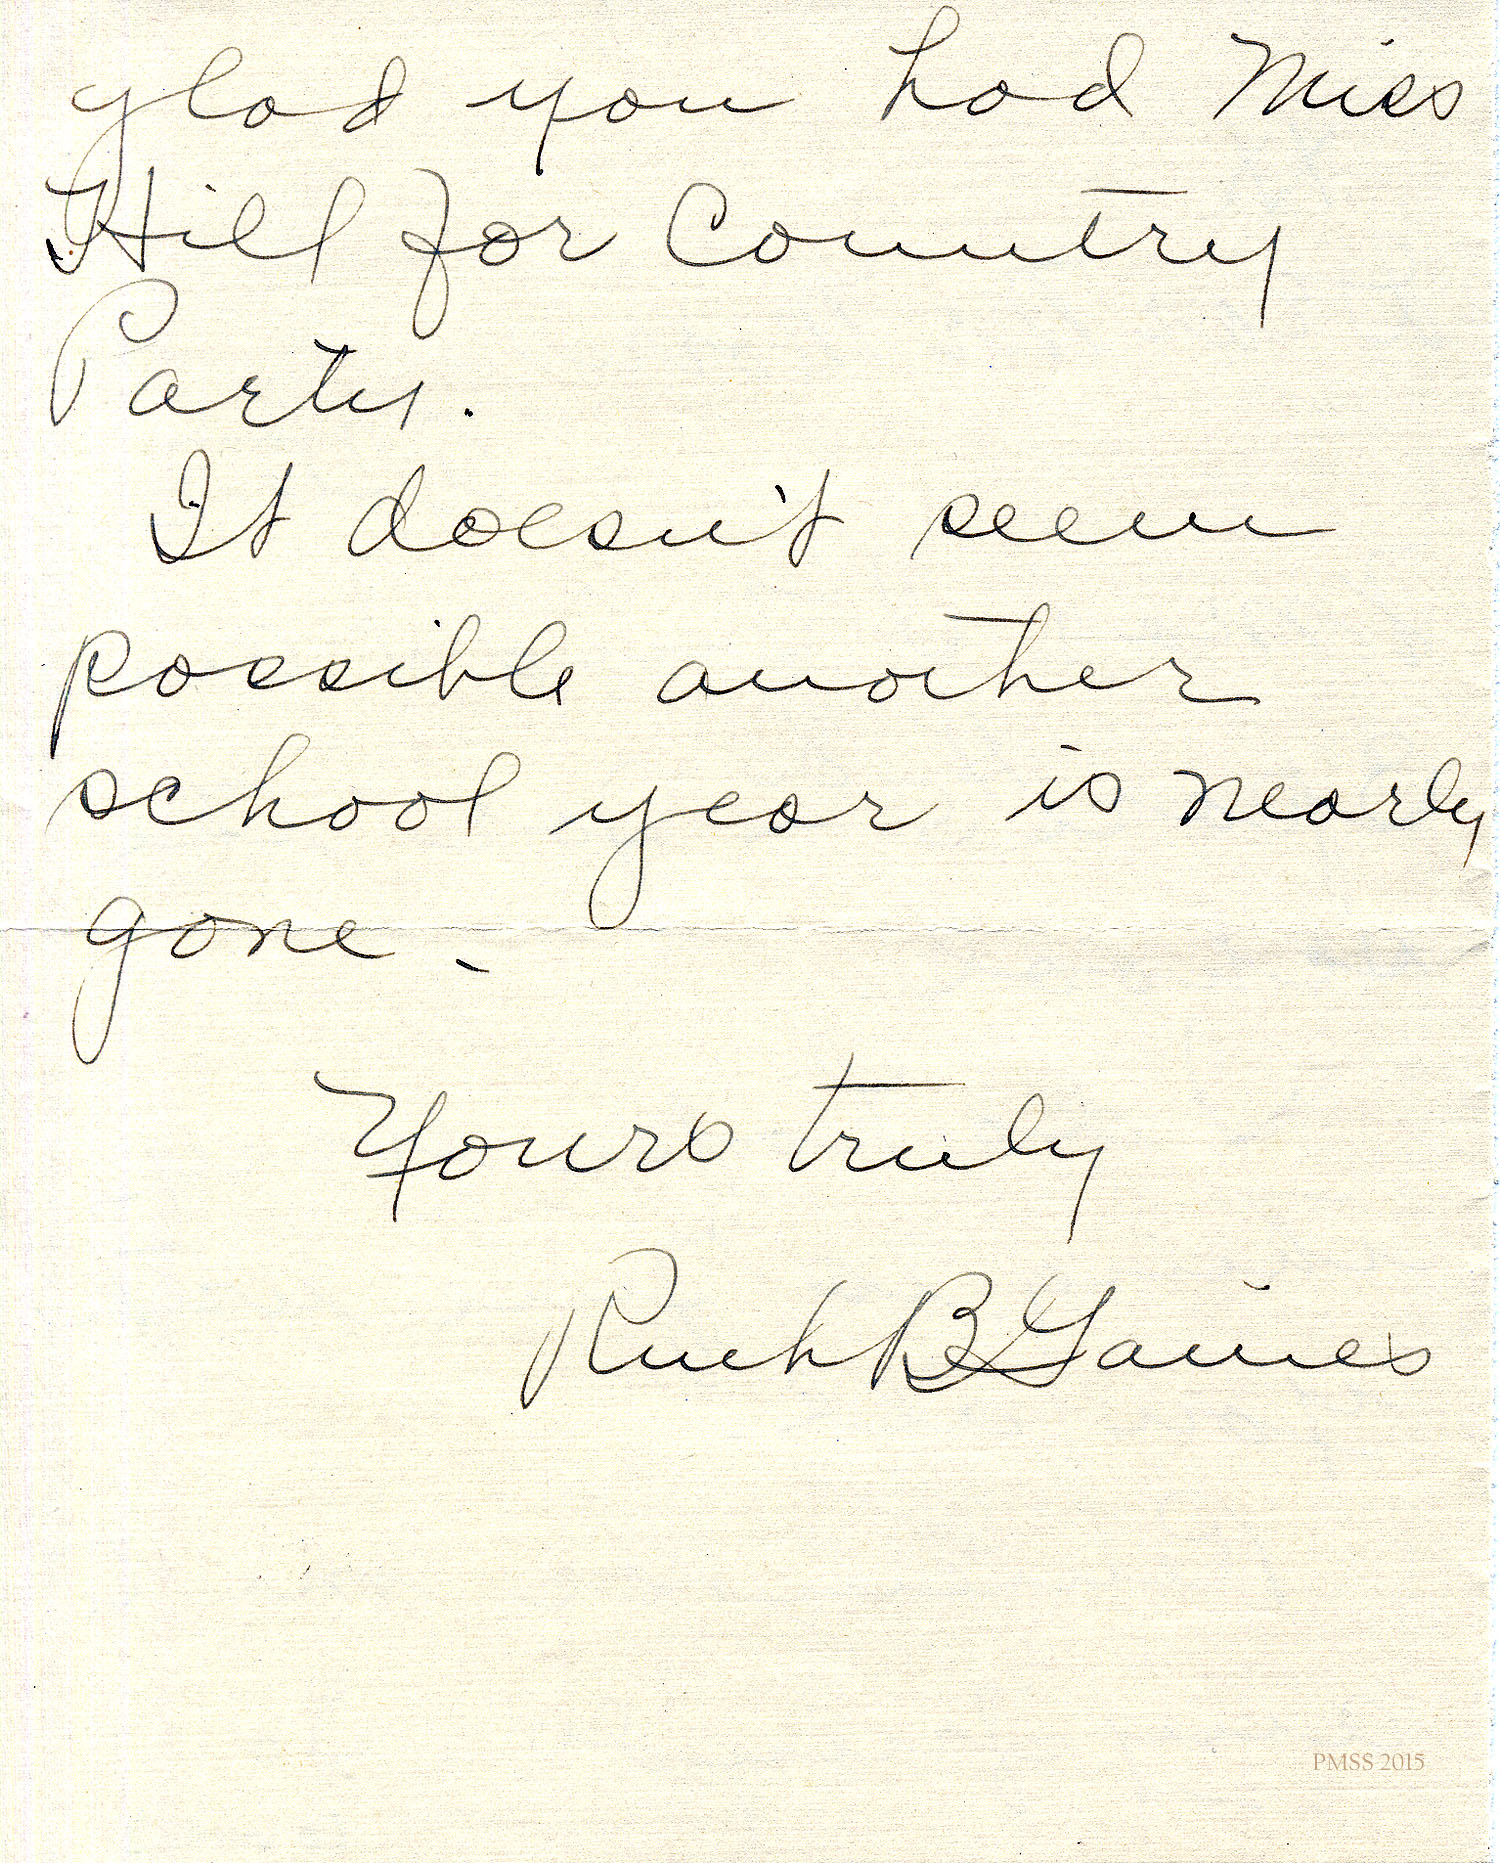 glad you had Miss
Hill for Country
Party.
It doesn't seem
possible another
school year is nearly
gone -
Yours truly
Ruth B Gaines
PMSS 2015